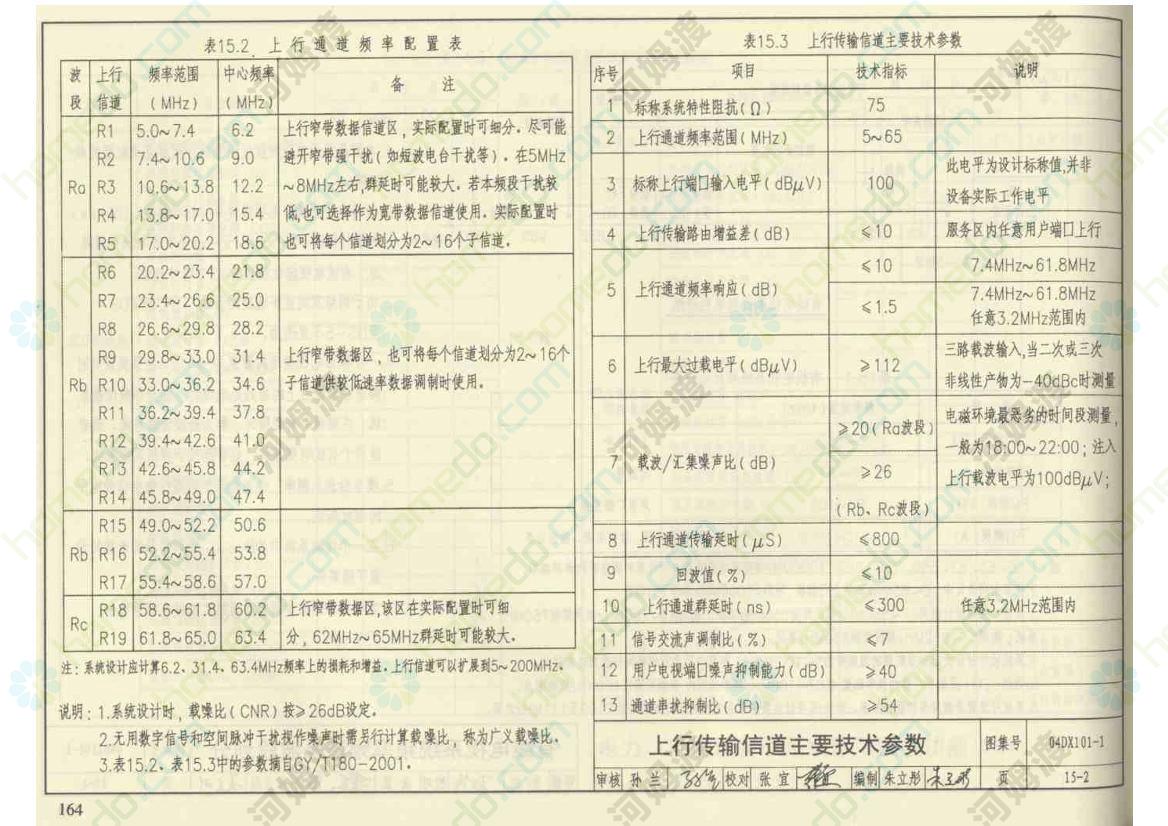 表15.2 上行通道频率配置表
波段 上行信道 频率范围(MHz) 中心频率(MHz) 备注
Ra R1 5.0~7.4 6.2 上行窄带数据信道区，实际配置时可细分。尽可能
R2 7.4~10.6 9.0 避开窄带强干扰(如短波电台干扰等)。在5MHz
R3 10.6~13.8 12.2 ~8MHz左右,群延时可能较大。若本频段干扰较
R4 13.8~17.0 15.4 低,也可选择作为宽带数据信道使用。实际配置时
R5 17.0~20.2 18.6 也可将每个信道划分为2~16个子信道。
Rb R6 20.2~23.4 21.8
R7 23.4~26.6 25.0
R8 26.6~29.8 28.2
R9 29.8~33.0 31.4 上行窄带数据区，也可将每个信道划分为2~16个
R10 33.0~36.2 34.6 子信道供较低速率数据调制时使用。
R11 36.2~39.4 37.8
R12 39.4~42.6 41.0
R13 42.6~45.8 44.2
R14 45.8~49.0 47.4
Rb R15 49.0~52.2 50.6
R16 52.2~55.4 53.8
R17 55.4~58.6 57.0
Rc R18 58.6~61.8 60.2 上行窄带数据区,该区在实际配置时可细
R19 61.8~65.0 63.4 分，62MHz~65MHz群延时可能较大。
注：系统设计应计算6.2、31.4、63.4MHz频率上的损耗和增益。上行信道可以扩展到5~200MHz。
说明：1.系统设计时，载噪比(CNR)按≥26dB设定。
2.无用数字信号和空间脉冲干扰视作噪声时需另行计算载噪比，称为广义载噪比。
3.表15.2、表15.3中的参数摘自GY/T180-2001。
164
表15.3 上行传输信道主要技术参数
序号 项目 技术指标 说明
1 标称系统特性阻抗(Ω) 75
2 上行通道频率范围(MHz) 5~65
3 标称上行端口输入电平(dBμV) 100 此电平为设计标称值,并非
设备实际工作电平
4 上行传输路由增益差(dB) ≤10 服务区内任意用户端口上行
5 上行通道频率响应(dB) ≤10 7.4MHz~61.8MHz
≤1.5 7.4MHz~61.8MHz
任意3.2MHz范围内
6 上行最大过载电平(dBμV) ≥112 三路载波输入,当二次或三次
非线性产物为-40dBc时测量
7 载波/汇集噪声比(dB) ≥20(Ra波段) 电磁环境最恶劣的时间段测量,
一般为18:00~22:00；注入
≥26 上行载波电平为100dBμV；
(Rb、Rc波段)
8 上行通道传输延时(μS) ≤800
9 回波值(%) ≤10
10 上行通道群延时(ns) ≤300 任意3.2MHz范围内
11 信号交流声调制比(%) ≤7
12 用户电视端口噪声抑制能力(dB) ≥40
13 通道串扰抑制比(dB) ≥54
上行传输信道主要技术参数 图集号 04DX101-1
审核 孙兰 校对 张宜 编制 朱立彤 朱立彤 页 15-2
河姆渡 homedo.com